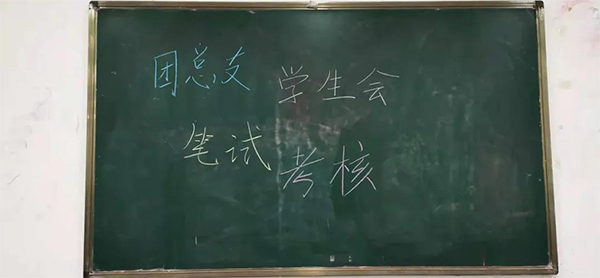 团总支 学生会
笔试考核